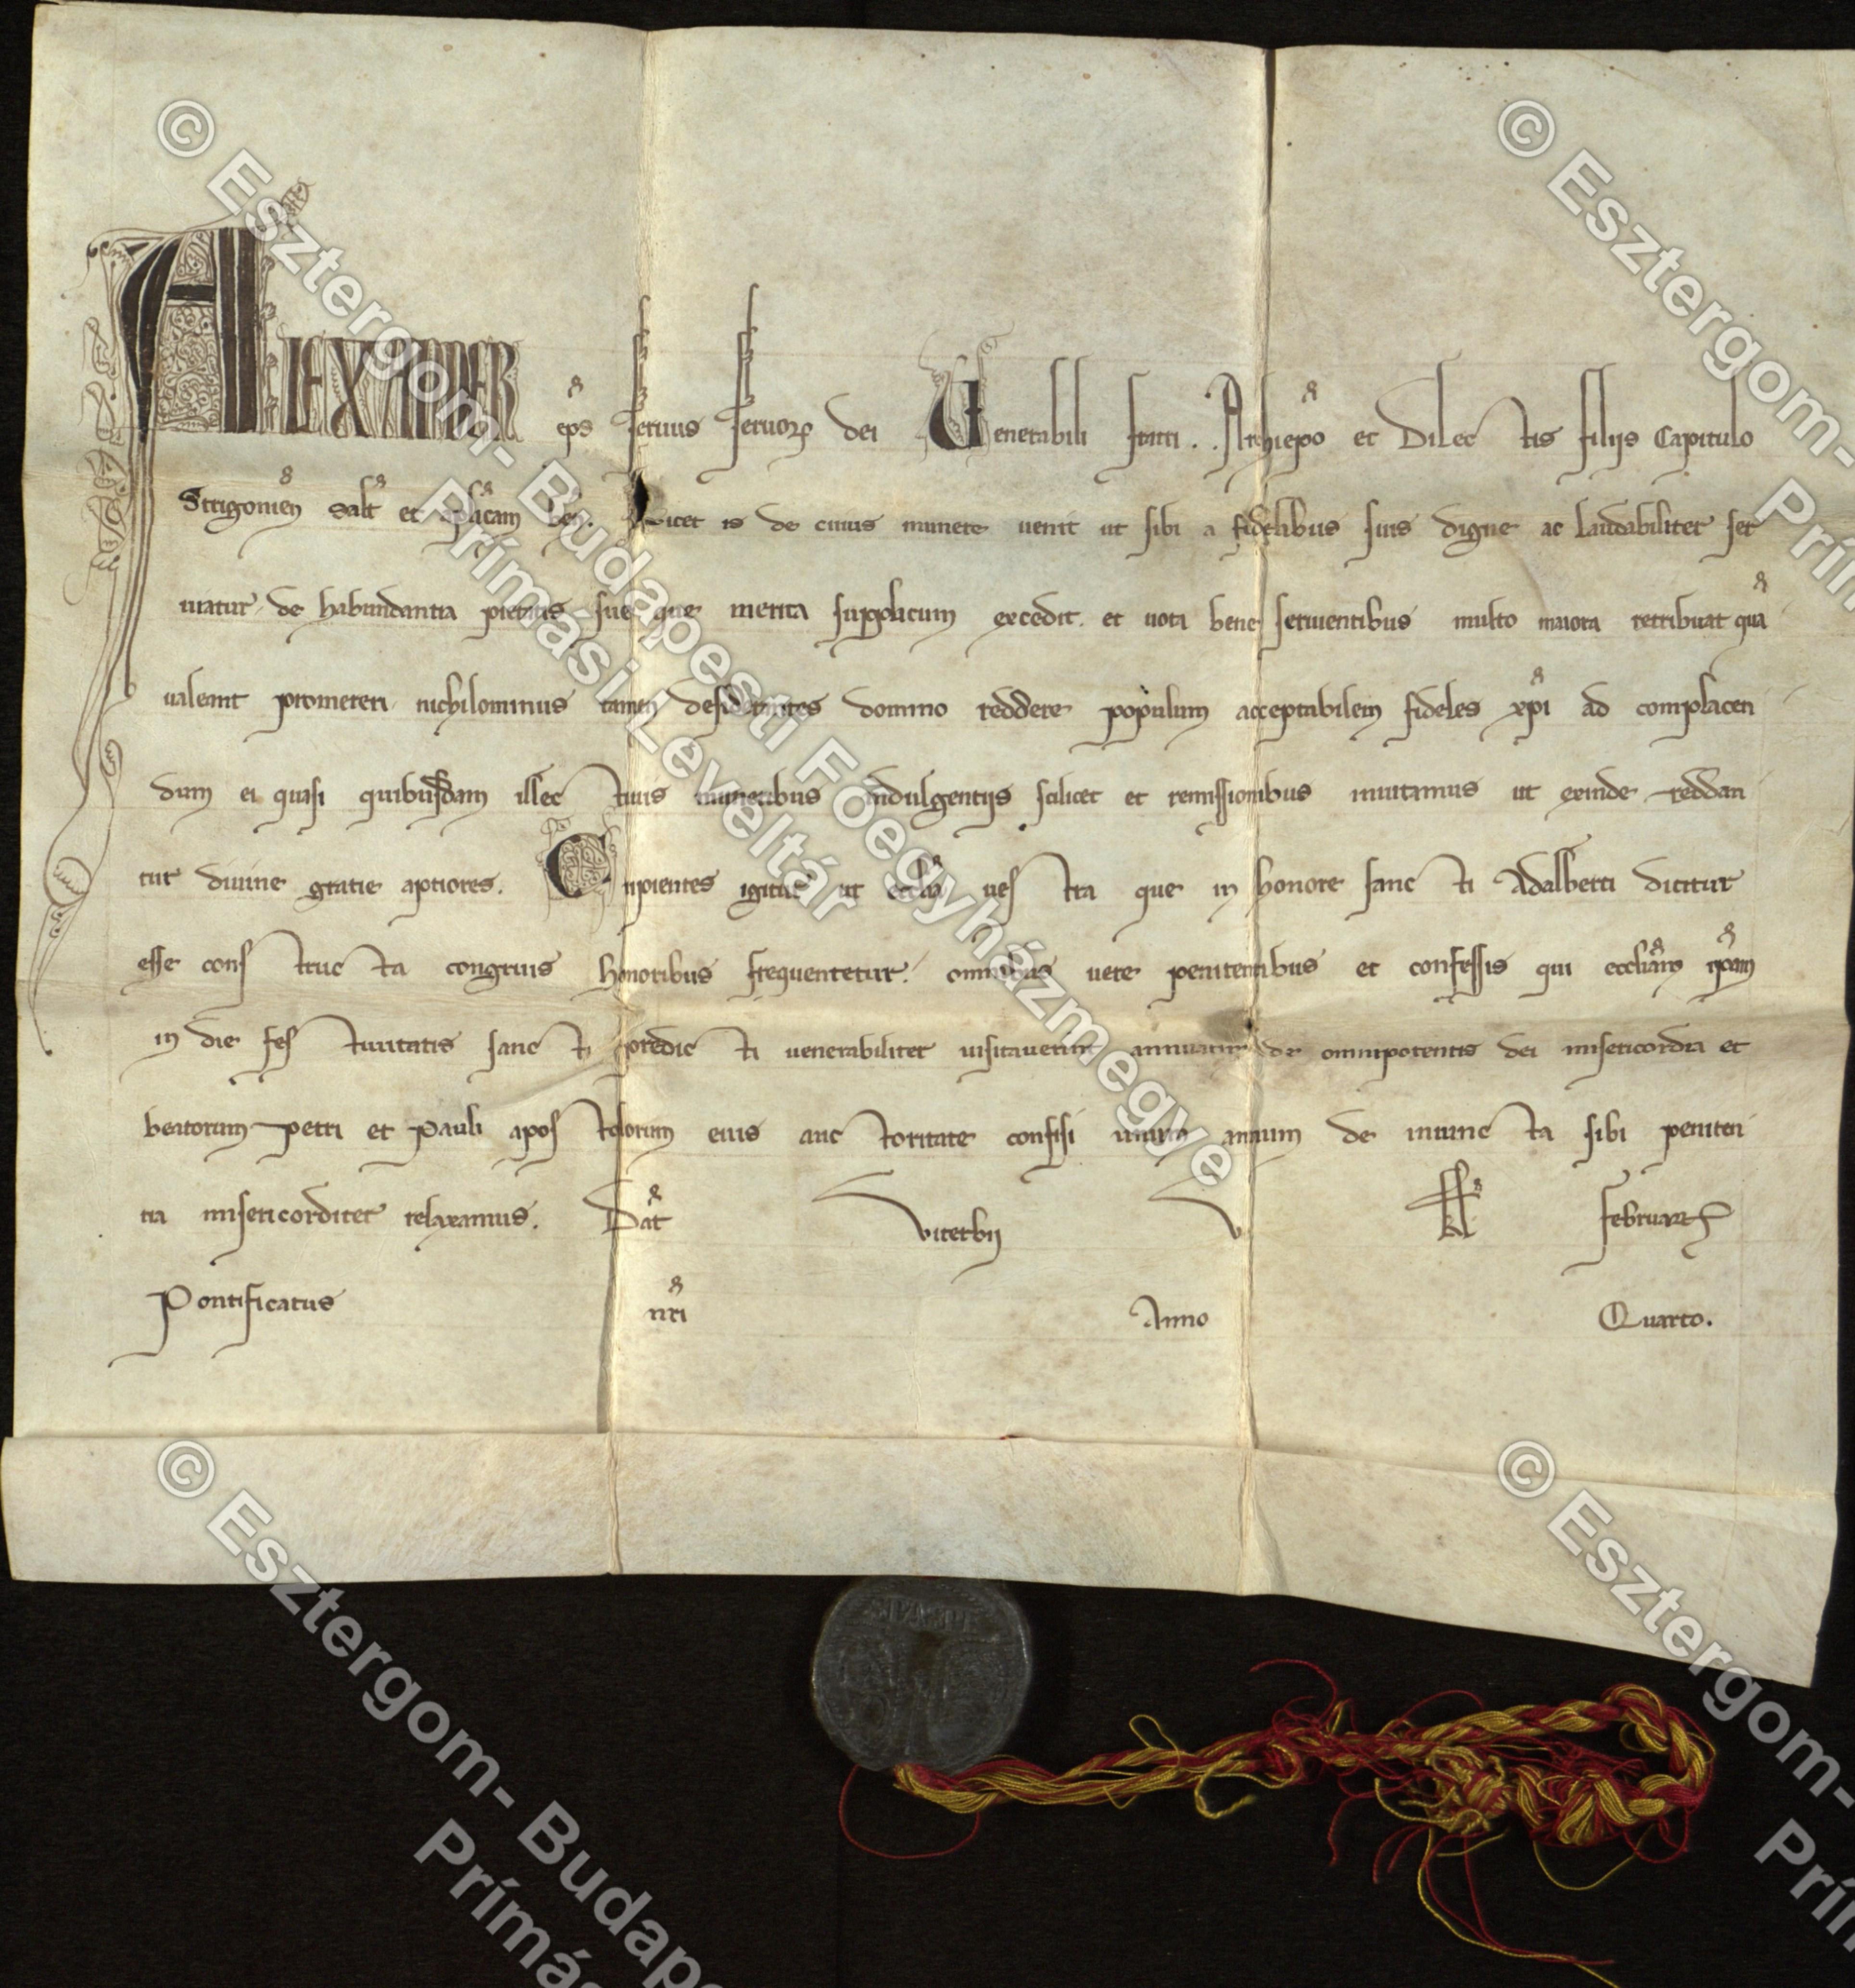 ALEXANDER ep̄s seruus seruoꝝ dei Venerabili fratri . . Archiep̄o et Dilectis filiis Capitulo
Strigonien̄ salt̄ et ap̄licam ben̄. Licet is de cuius munere uenit ut sibi a fidelibus suis digne ac laudabiliter ser
uiatur, de habundantia pietatis sue que merita supplicum excedit et uota bene seruientibus multo maiora retribuat quā
ualeant promereri, nichilominus tamen desiderantes domino reddere populum acceptabilem fideles xp̄i ad complacen
dum ei quasi quibusdam illectiuis muneribus indulgentiis scilicet et remissionibus inuitamus ut exinde reddan
tur diuine gratie aptiores. Cupientes igitur ut ecc̄lia uestra que in honore sancti Adalberti dicitur
esse constructa congruis honoribus frequentetur, omnibus uere penitentibus et confessis qui eccl̄iam ip̄am
in die festiuitatis sancti predicti uenerabiliter uisitauerint annuatim de omnipotentis dei misericordia et
beatorum Petri et Pauli apostolorum eius auctoritate confisi unum annum de iniuncta sibi peniten
tia misericorditer relaxamus. Dat̄ Viterbii V kl̄ Februarꝝ
Pontificatus nr̄i Anno Quarto.
© Esztergom- Budapesti Főegyházmegye
Prímási Levéltár
© Esztergom-
Prím
© Esztergom- Budape
Prímás
© Esztergom-
Prí